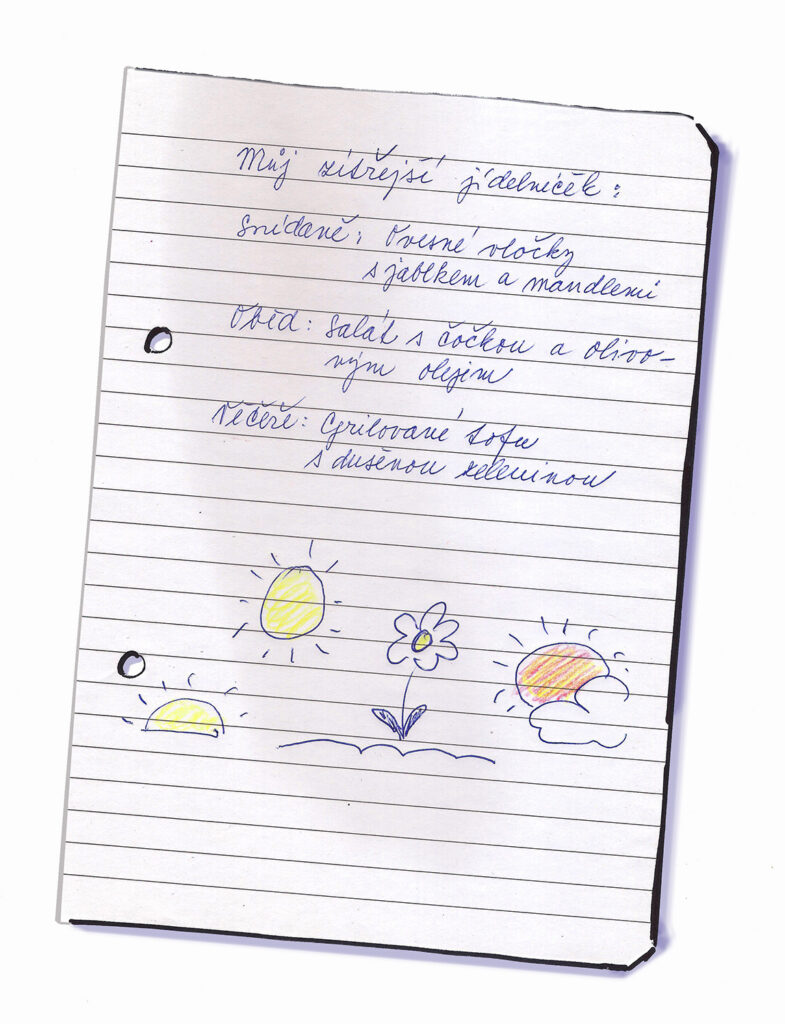 Můj zítřejší jídelníček:
Snídaně: Ovesné vločky
s jablkem a mandlemi
Oběd: Salát s čočkou a olivo-
vým olejem
Večeře: Grilované tofu
s dušenou zeleninou